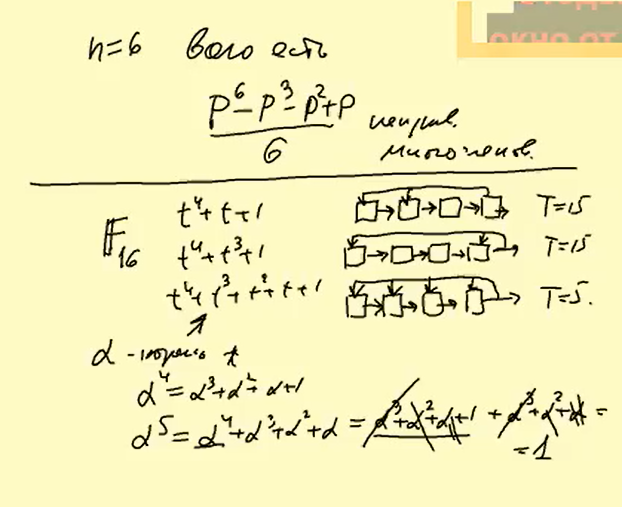 окно от
n=6 всего есть
p⁶-p³-p²+p
6
неприв.
многочленов.
F₁₆ t⁴+t+1 T=15
t⁴+t³+1 T=15
t⁴+t³+t²+t+1 T=5.
α - корень
α⁴=α³+α²+α+1
α⁵=α⁴+α³+α²+α = α³+α²+α+1 + α³+α²+α =
=1